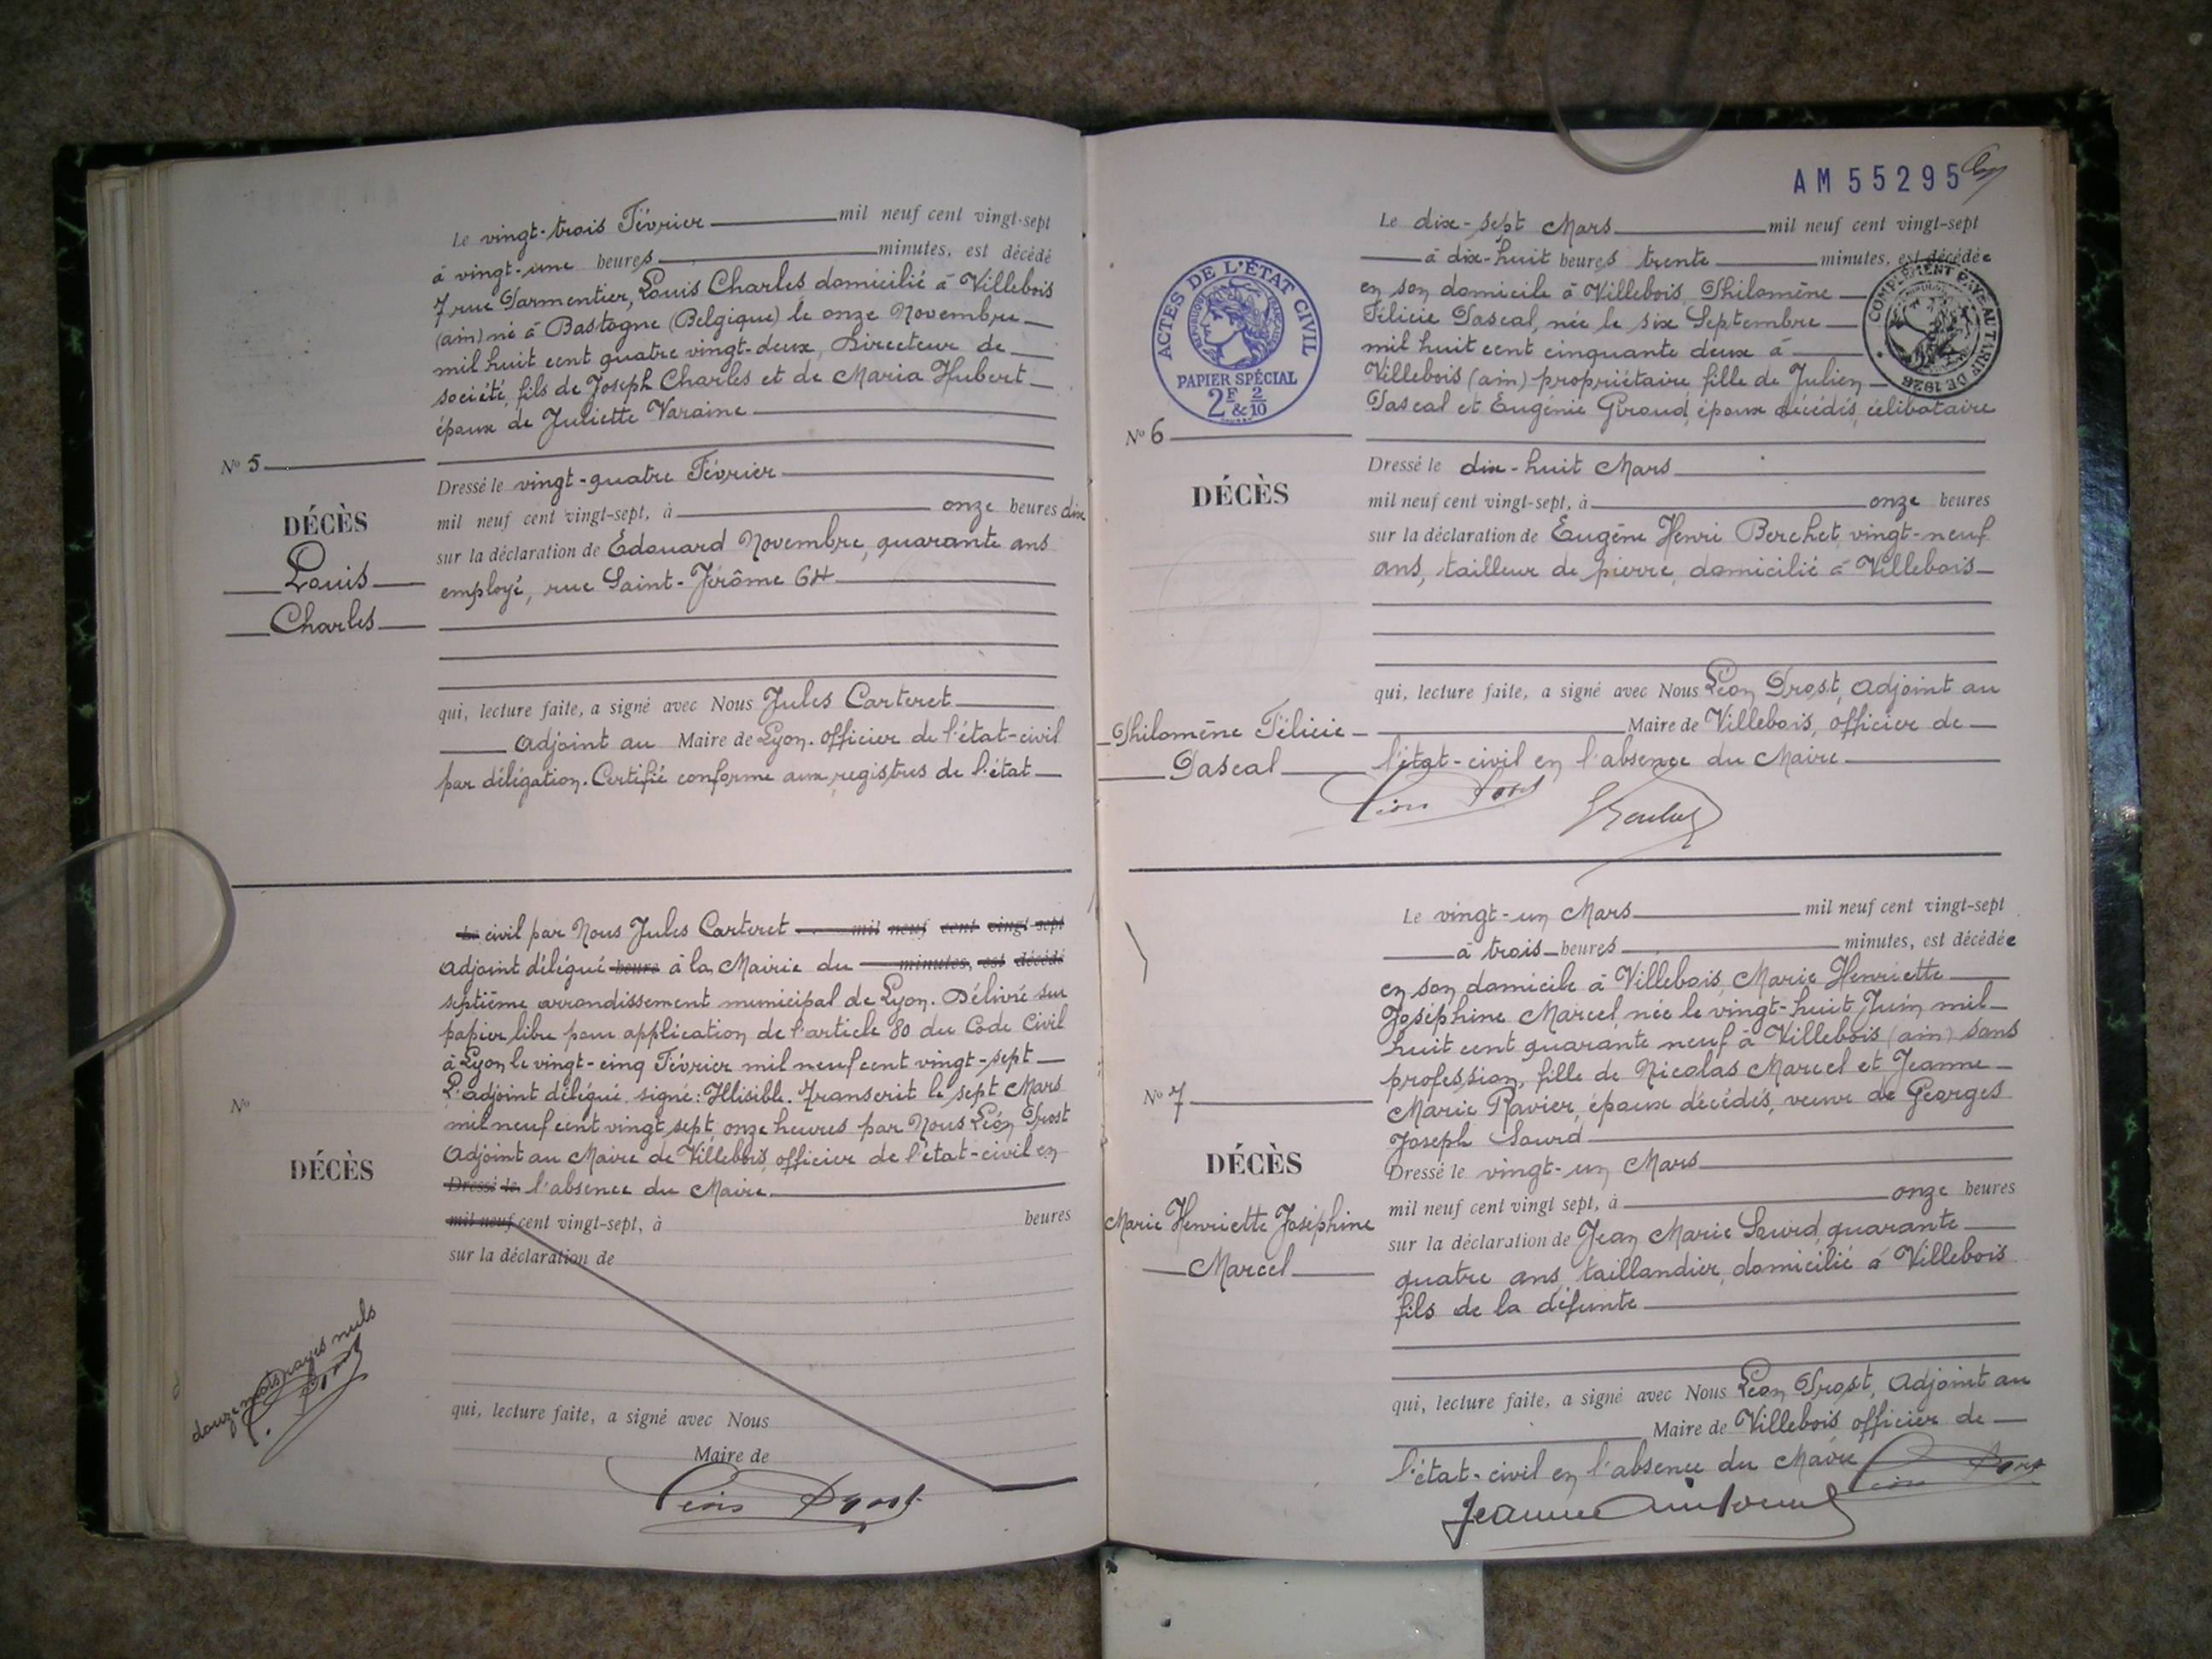 Le vingt-trois Février mil neuf cent vingt-sept
à vingt-une heures minutes, est décédé
7 rue Parmentier, Louis Charles domicilié à Villebois
(ain) né à Bastogne (Belgique) le onze Novembre
mil huit cent quatre vingt-deux, Directeur de
société, fils de Joseph Charles et de Maria Hubert
époux de Juliette Varaine
N° 5
DÉCÈS
Louis
Charles
Dressé le vingt-quatre Février
mil neuf cent vingt-sept, à onze heures dix
sur la déclaration de Edouard Novembre, quarante ans
employé, rue Saint-Jérôme 64
qui, lecture faite, a signé avec Nous Jules Carteret
adjoint au Maire de Lyon. officier de l'état-civil
par délégation. Certifié conforme aux registres de l'état
Le civil par Nous Jules Carteret mil neuf cent vingt-sept
adjoint délégué heure à la Mairie du minutes, est décédé
septième arrondissement municipal de Lyon. Délivré sur
papier libre pour application de l'article 80 du Code Civil
à Lyon le vingt-cinq Février mil neuf cent vingt-sept
L'adjoint délégué, signé: Illisible. Transcrit le sept Mars
mil neuf cent vingt sept, onze heures par Nous Léon Prost
Adjoint au Maire de Villebois, officier de l'état-civil en
Dressé le l'absence du Maire.
N°
DÉCÈS
mil neuf cent vingt-sept, à heures
sur la déclaration de
douze mots rayés nuls
L. Prost
qui, lecture faite, a signé avec Nous
Maire de
Léon Prost
AM 55295
ACTES DE L'ÉTAT CIVIL
RÉPUBLIQUE FRANÇAISE
PAPIER SPÉCIAL
2F & 2/10
COMPLÉMENT PAYÉ AU TARIF DE 1926
Le dix-sept Mars mil neuf cent vingt-sept
à dix-huit heures trente minutes, est décédée
en son domicile à Villebois, Philomène
Félicie Pascal, née le six Septembre
mil huit cent cinquante deux à
Villebois (ain) propriétaire fille de Julien
Pascal et Eugénie Giroud, époux décédés, célibataire
N° 6
DÉCÈS
Philomène Félicie
Pascal
Dressé le dix-huit Mars
mil neuf cent vingt-sept, à onze heures
sur la déclaration de Eugène Henri Berchet, vingt-neuf
ans, tailleur de pierre, domicilié à Villebois
qui, lecture faite, a signé avec Nous Léon Prost, Adjoint au
Maire de Villebois, officier de
l'état-civil en l'absence du Maire
Léon Prost
Le vingt-un Mars mil neuf cent vingt-sept
à trois heures minutes, est décédée
en son domicile à Villebois, Marie Henriette
Joséphine Marcel, née le vingt-huit Juin mil
huit cent quarante neuf à Villebois (ain) sans
profession, fille de Nicolas Marcel et Jeanne
Marie Ravier, époux décédés, veuve de Georges
Joseph Sourd
N° 7
DÉCÈS
Marie Henriette Joséphine
Marcel
Dressé le vingt-un Mars
mil neuf cent vingt sept, à onze heures
sur la déclaration de Jean Marie Sourd, quarante
quatre ans, taillandier, domicilié à Villebois
fils de la défunte
qui, lecture faite, a signé avec Nous Léon Prost, Adjoint au
Maire de Villebois officier de
l'état-civil en l'absence du Maire
Léon Prost